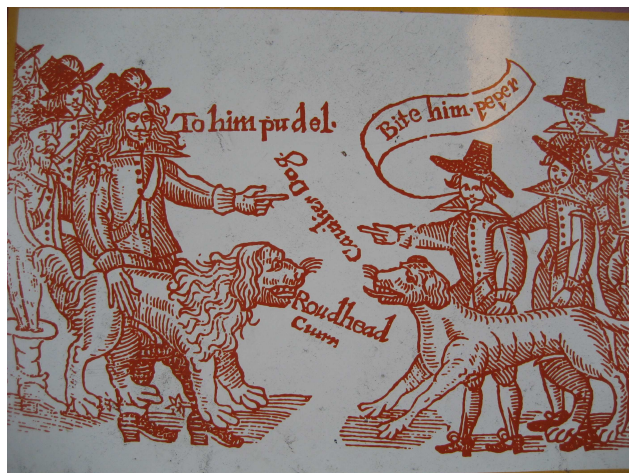 To him pudel.
Bite him. peper
Cavalier Dog
Roudhead
Curr